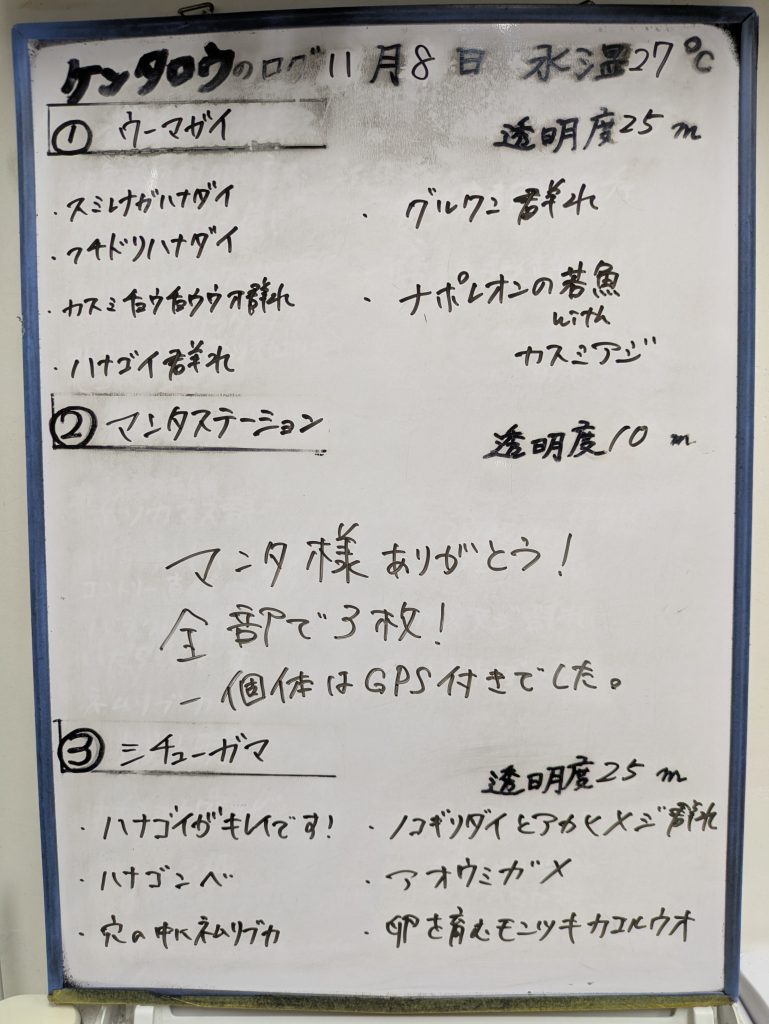 ケンタロウのログ 11月8日 水温27℃
① ウーマガイ
透明度25m
・スミレナガハナダイ
・フチドリハナダイ
・カスミチョウチョウウオ群れ
・ハナゴイ群れ
・グルクン群れ
・ナポレオンの若魚
with
カスミアジ
② マンタステーション
透明度10m
マンタ様ありがとう!
全部で3枚!
一個体はGPS付きでした。
③ ミチューガマ
透明度25m
・ハナゴイがキレイです!
・ハナゴンベ
・穴の中にネムリブカ
・ノコギリダイとアカヒメジ群れ
・アオウミガメ
・卵を育むモンツキカエルウオ